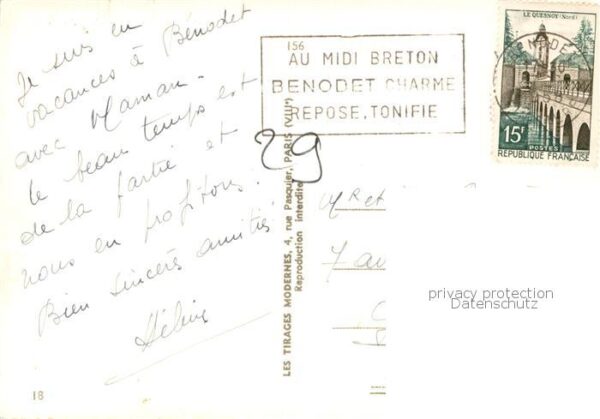 Je suis en
vacances à Bénodet
avec Maman.
le beau temps est
de la partie et
nous en profitons.
Bien sincères amitiés
Hélène
18
156
AU MIDI BRETON
BENODET CHARME
REPOSE, TONIFIE
29
LES TIRAGES MODERNES, 4, rue Pasquier, PARIS (VIIIe)
Reproduction interdite
LE QUESNOY (Nord)
15F
POSTES
REPUBLIQUE FRANÇAISE
Mr et
7 av
privacy protection
Datenschutz